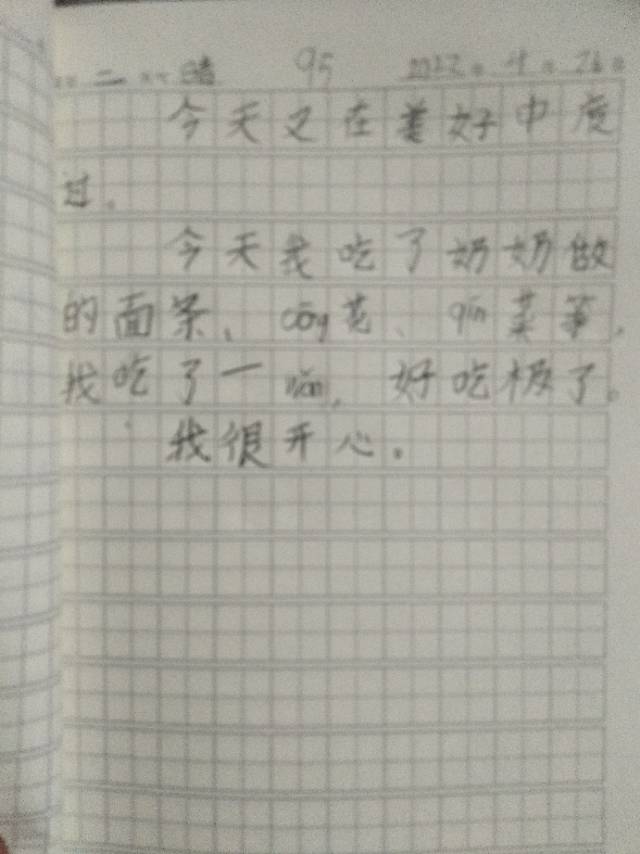 二 晴 95 2022. 4. 26.
今天又在美好中度
过。
今天我吃了奶奶做
的面条、cōng花、qín菜等,
我吃了一wǎn,好吃极了。
我很开心。